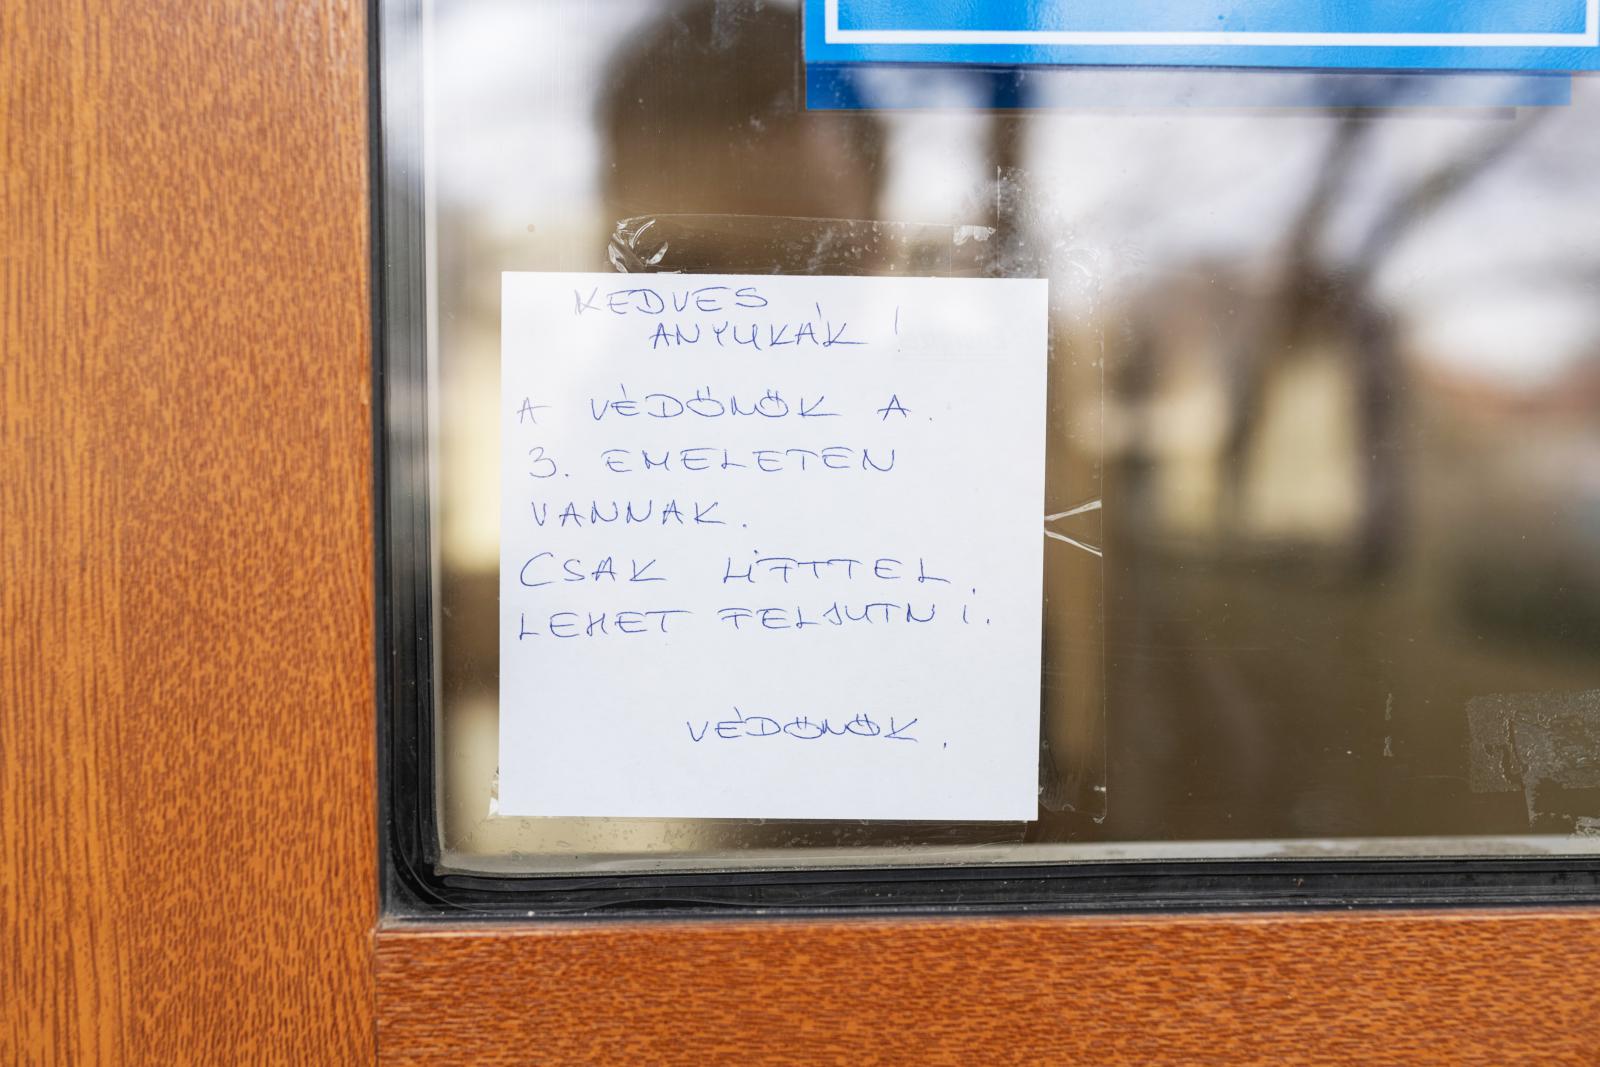 KEDVES
ANYUKÁK!
A VÉDŐNŐK A.
3. EMELETEN
VANNAK.
CSAK LIFTTEL.
LEHET FELJUTNI.
VÉDŐNŐK.